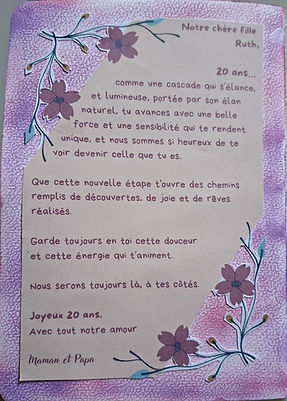 Notre chère fille
Ruth,
20 ans...
comme une cascade qui s'élance,
et lumineuse, portée par son élan
naturel, tu avances avec une belle
force et une sensibilité qui te rendent
unique, et nous sommes si heureux de te
voir devenir celle que tu es.
Que cette nouvelle étape t'ouvre des chemins
remplis de découvertes, de joie et de rêves
réalisés.
Garde toujours en toi cette douceur
et cette énergie qui t'animent.
Nous serons toujours là, à tes côtés.
Joyeux 20 ans.
Avec tout notre amour
Maman et Papa